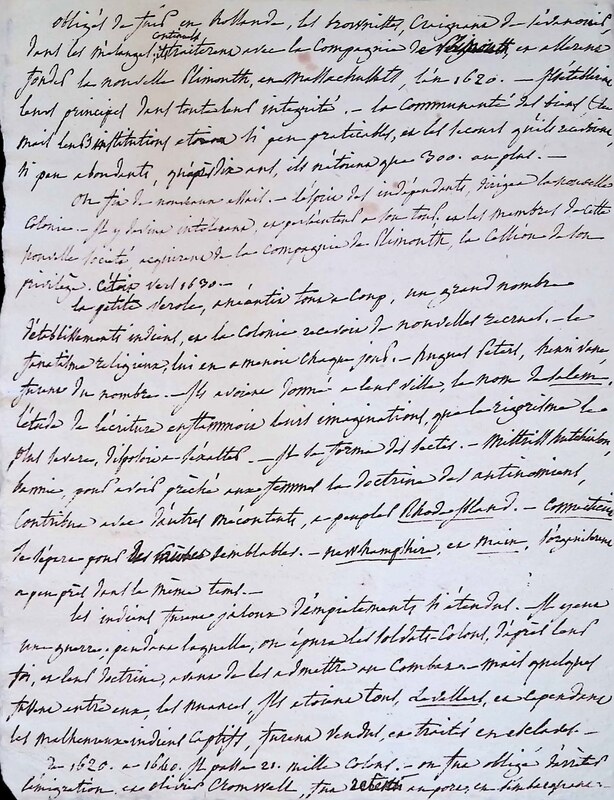 obligés de fuir en hollande, les brownistes, craignant de se dénaturer
dans les mélanges continuels, traiterent avec la Compagnie de plimouth, et allerent
fonder la nouvelle Plimouth, en Massachussets, l'an 1620. — Ils établirent
leurs principes dans toute leur intégrité. — la Communauté des biens
mais leurs institutions etoient si peu praticables, et les secours qu'ils recevoient,
si peu abondants, qu'après dix ans, ils n'étoient que 300. au plus. —
On fit de nouveaux essais. — l'espoir des indépendants, dirigea la nouvelle
Colonie. — Ils y devinrent intolérans, et persécuteurs a leur tour, et les membres de cette
nouvelle société acquirent de la Compagnie de Plimouth, la Cession de son
privilège. C'étoit vers 1630 —
la petite verole, anéantit tout a coup, un grand nombre
d'établissements indiens, et la Colonie recevoit de nouvelles recrues. — le
fanatisme religieux, lui en amenoit chaque jour. — hugues Peters, henri vane
furent du nombre. — Ils avoient donné a leur ville, le nom de Salem.
l'étude de l'écriture enflammoit leurs imaginations, que le rigorisme le
plus severe, disposoit a s'exalter. — Il se forma des sectes. — Mistriss hutchinson,
bannie, pour avoir prêché aux femmes la doctrine des antinomiens,
Contribua avec d'autres mécontents, a peupler Rhode Island. — Connecticut
se sépara pour des semblables. — new hampshire, et Main, s'organiserent
a peu près dans le même tems. —
les indiens furent jaloux d'empietements si étendus. — Il y eut
une guerre, pendant laquelle, on épura les soldats-Colons, d'après leur
foi, et leur doctrine, avant de les admettre au Combat. — mais quelques
fussent entre eux, les nuances, ils etoient tous, Levellers, et cependant
les malheureux indiens captifs, furent vendus, et traités en esclaves. —
De 1620. a 1640. Il passa 21. mille Colons. — on fut obligé d'arrêter
l'émigration, et olivier Cromwell, fut retenu au port, en s'embarquant.